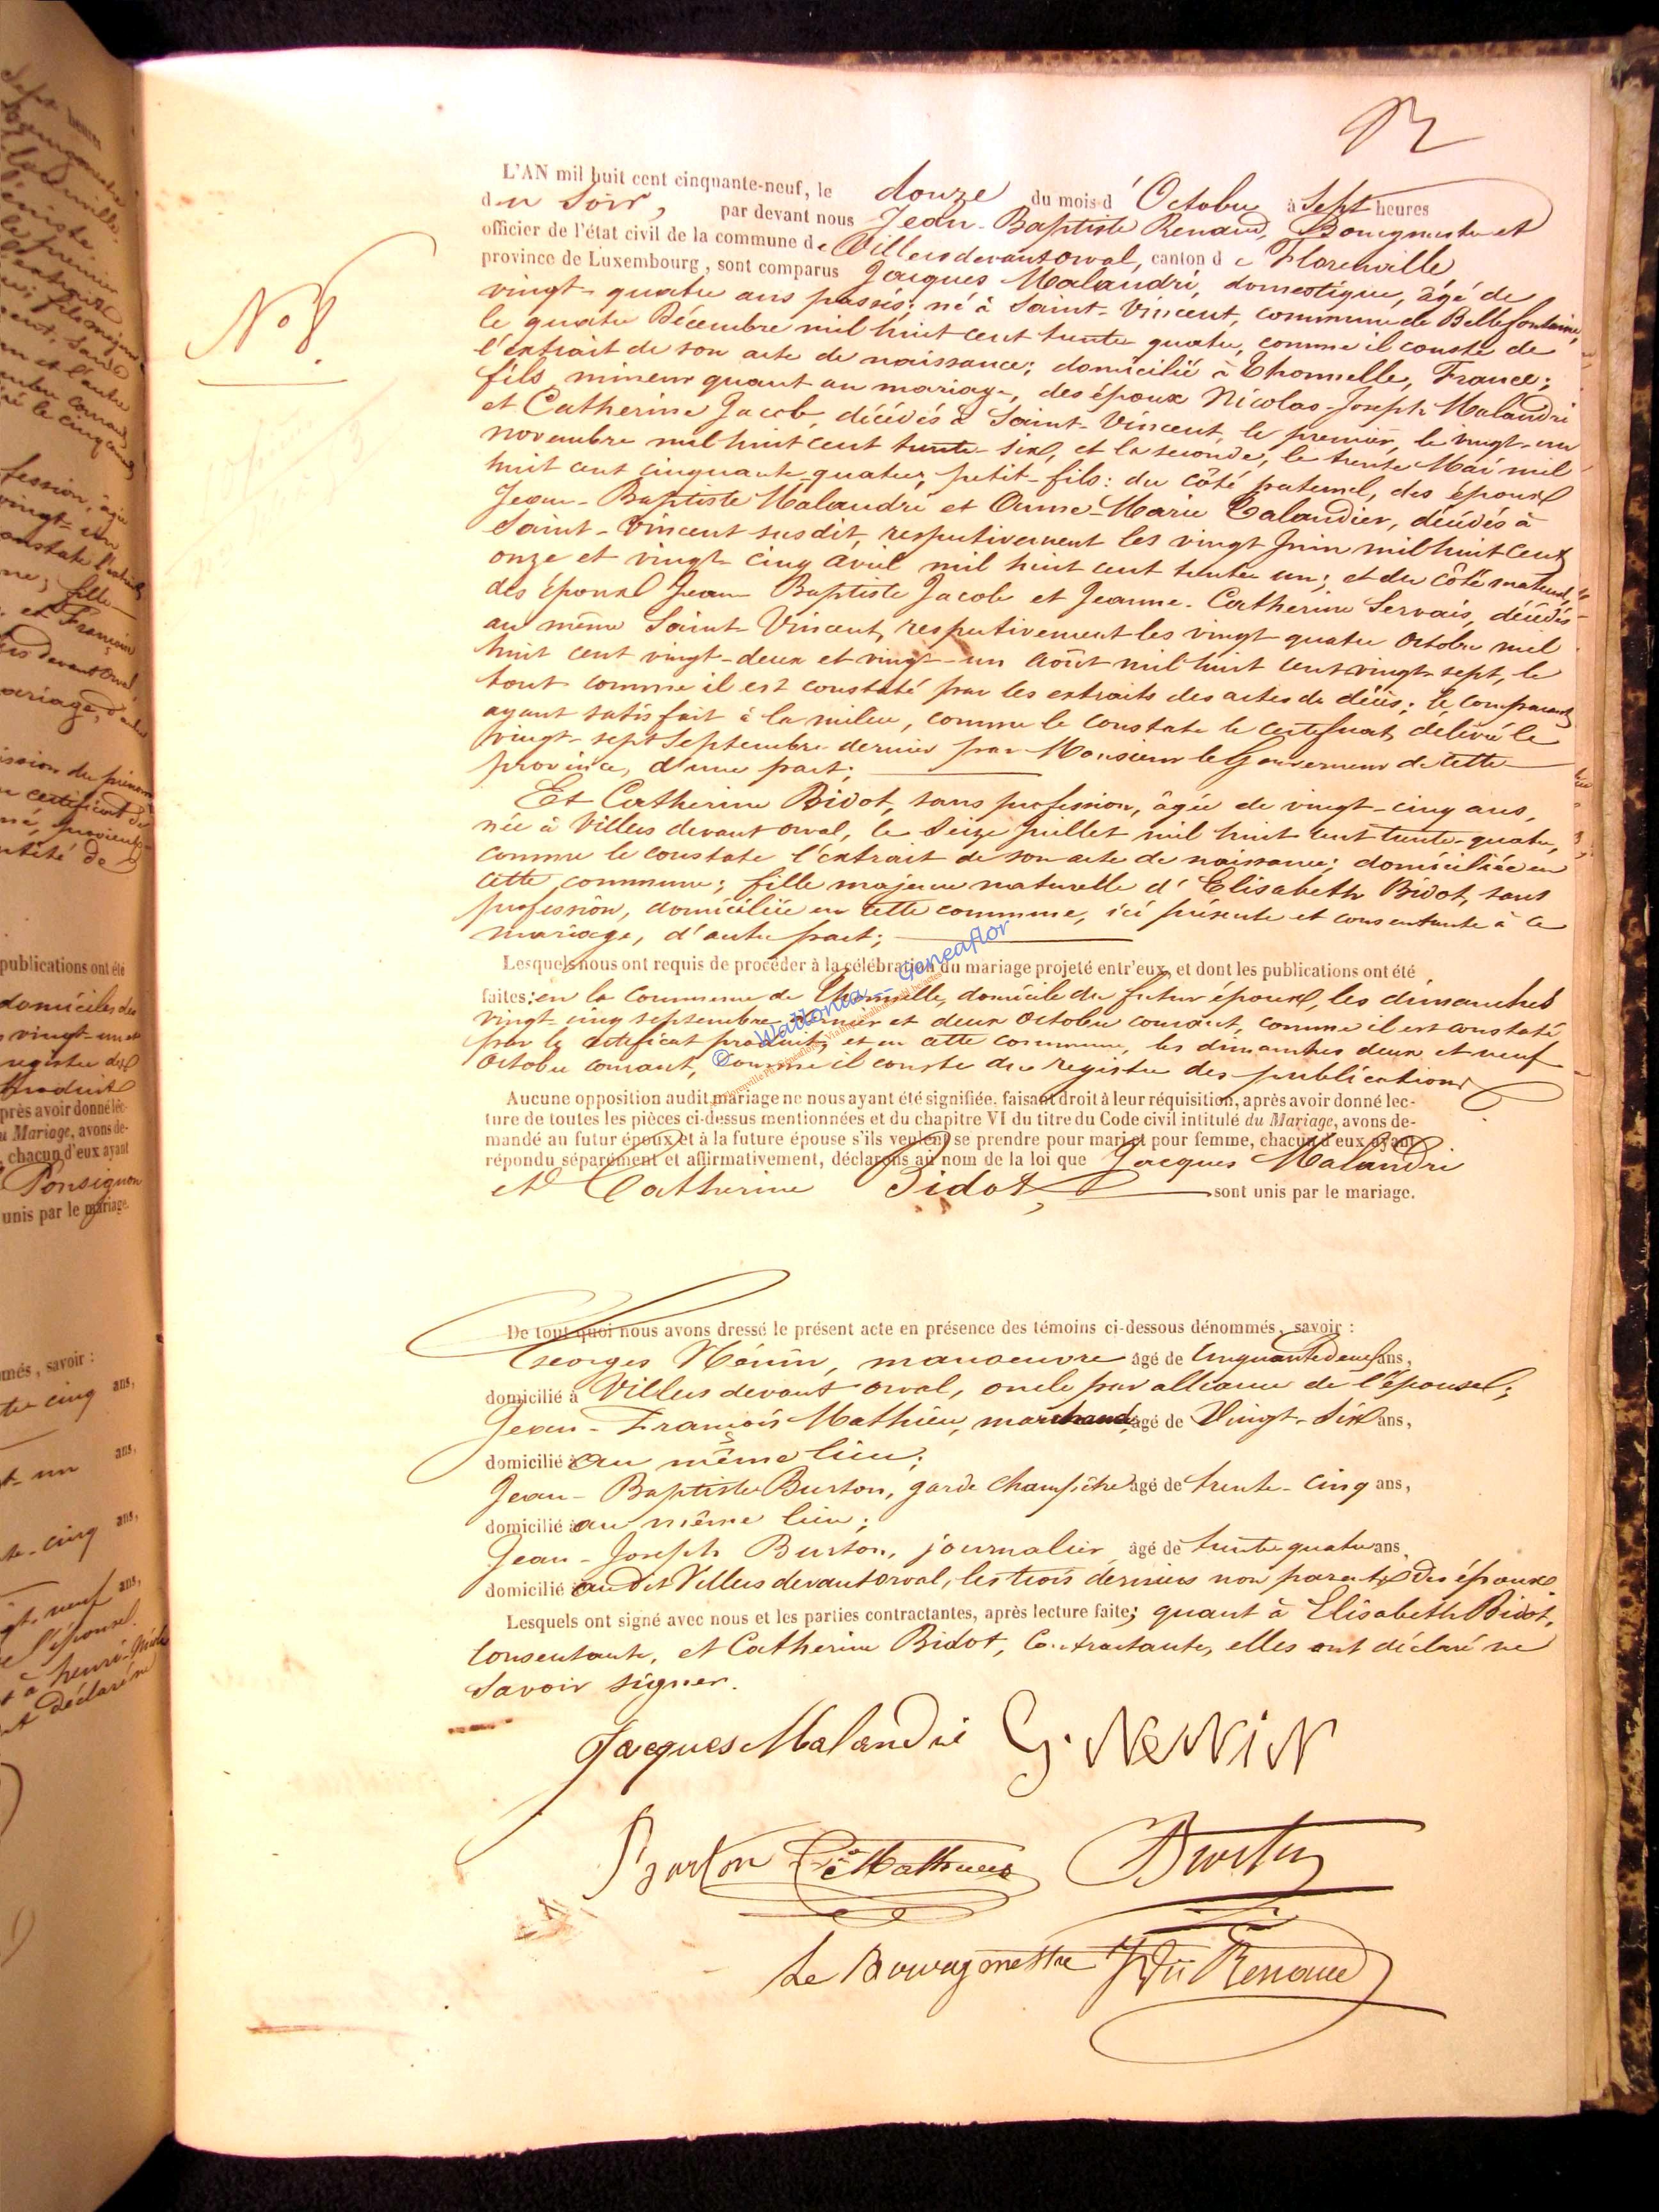 N° 8.
L'AN mil huit cent cinquante-neuf, le douze du mois d'Octobre à Sept heures
du Soir, par devant nous Jean-Baptiste Renaud, Bourgmestre et
officier de l'état civil de la commune de Villersdevantorval, canton de Florenville
province de Luxembourg, sont comparus Jacques Malandri, domestique, âgé de
vingt-quatre ans passés; né à Saint-Vincent, commune de Bellefontaine,
le quatre Décembre mil huit cent trente quatre, comme il conste de
l'extrait de son acte de naissance; domicilié à Thonnelle, France;
fils mineur quant au mariage, des époux Nicolas-Joseph Malandri
et Catherine Jacob, décédés à Saint-Vincent, le premier, le vingt-un
novembre mil huit cent trente-six, et la seconde, le trente Mai mil
huit cent cinquante-quatre; petit-fils: du côté paternel, des époux
Jean-Baptiste Malandri et Anne-Marie Talandier, décédés à
Saint-Vincent susdit, respectivement les vingt Juin mil huit cent
onze et vingt-cinq avril mil huit cent trente un; et du côté maternel,
des époux Jean Baptiste Jacob et Jeanne-Catherine Servais, décédés
au même Saint-Vincent, respectivement les vingt-quatre Octobre mil
huit cent vingt-deux et vingt-un Août mil huit cent vingt-sept, le
tout comme il est constaté par les extraits des actes de décès; le comparant
ayant satisfait à la milice, comme le constate le certificat délivré le
vingt-sept Septembre dernier par Monsieur le Gouverneur de cette
province, d'une part;
Et Catherine Bidot, sans profession, âgée de vingt-cinq ans,
née à Villers devant orval, le Seize Juillet mil huit cent trente-quatre,
comme le constate l'extrait de son acte de naissance; domiciliée en
cette commune; fille majeure naturelle d'Elisabeth Bidot, sans
profession, domiciliée en cette commune, ici présente et consentante à ce
mariage, d'autre part;
Lesquels nous ont requis de procéder à la célébration du mariage projeté entr'eux, et dont les publications ont été
faites: en la commune de Thonnelle, domicile du futur époux, les dimanches
vingt-cinq septembre dernier et deux Octobre courant, comme il est constaté
par le certificat produit, et en cette commune, les dimanches deux et neuf
Octobre courant, comme il conste du registre des publications
Aucune opposition audit mariage ne nous ayant été signifiée, faisant droit à leur réquisition, après avoir donné lec-
ture de toutes les pièces ci-dessus mentionnées et du chapitre VI du titre du Code civil intitulé du Mariage, avons de-
mandé au futur époux et à la future épouse s'ils veulent se prendre pour mari et pour femme, chacun d'eux ayant
répondu séparément et affirmativement, déclarons au nom de la loi que Jacques Malandri
et Catherine Bidot, sont unis par le mariage.
De tout quoi nous avons dressé le présent acte en présence des témoins ci-dessous dénommés, savoir :
Georges Nénin, manoeuvre âgé de Cinquante deux ans,
domicilié à Villers devant orval, oncle par alliance de l'épouse;
Jean-François Mathieu, marchand, âgé de Vingt-Six ans,
domicilié au même lieu;
Jean-Baptiste Burton, garde Champêtre âgé de trente-cinq ans,
domicilié au même lieu;
Jean-Joseph Burton, journalier âgé de trente quatre ans,
domicilié audit Villers devant orval, les trois derniers non parents des époux
Lesquels ont signé avec nous et les parties contractantes, après lecture faite; quant à Elisabeth Bidot,
Consentante, et Catherine Bidot, Contractante, elles ont déclaré ne
Savoir signer.
Jacques Malandri G. NeNNiN
Burton Mathieu Burton
Le Bourgmestre Renaud
© Wallonia - Geneaflor